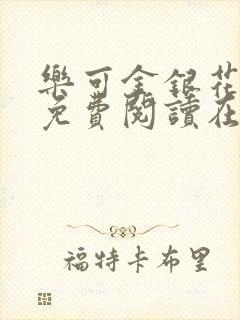 樂可金銀花
免費閱讀在
福特卡布里